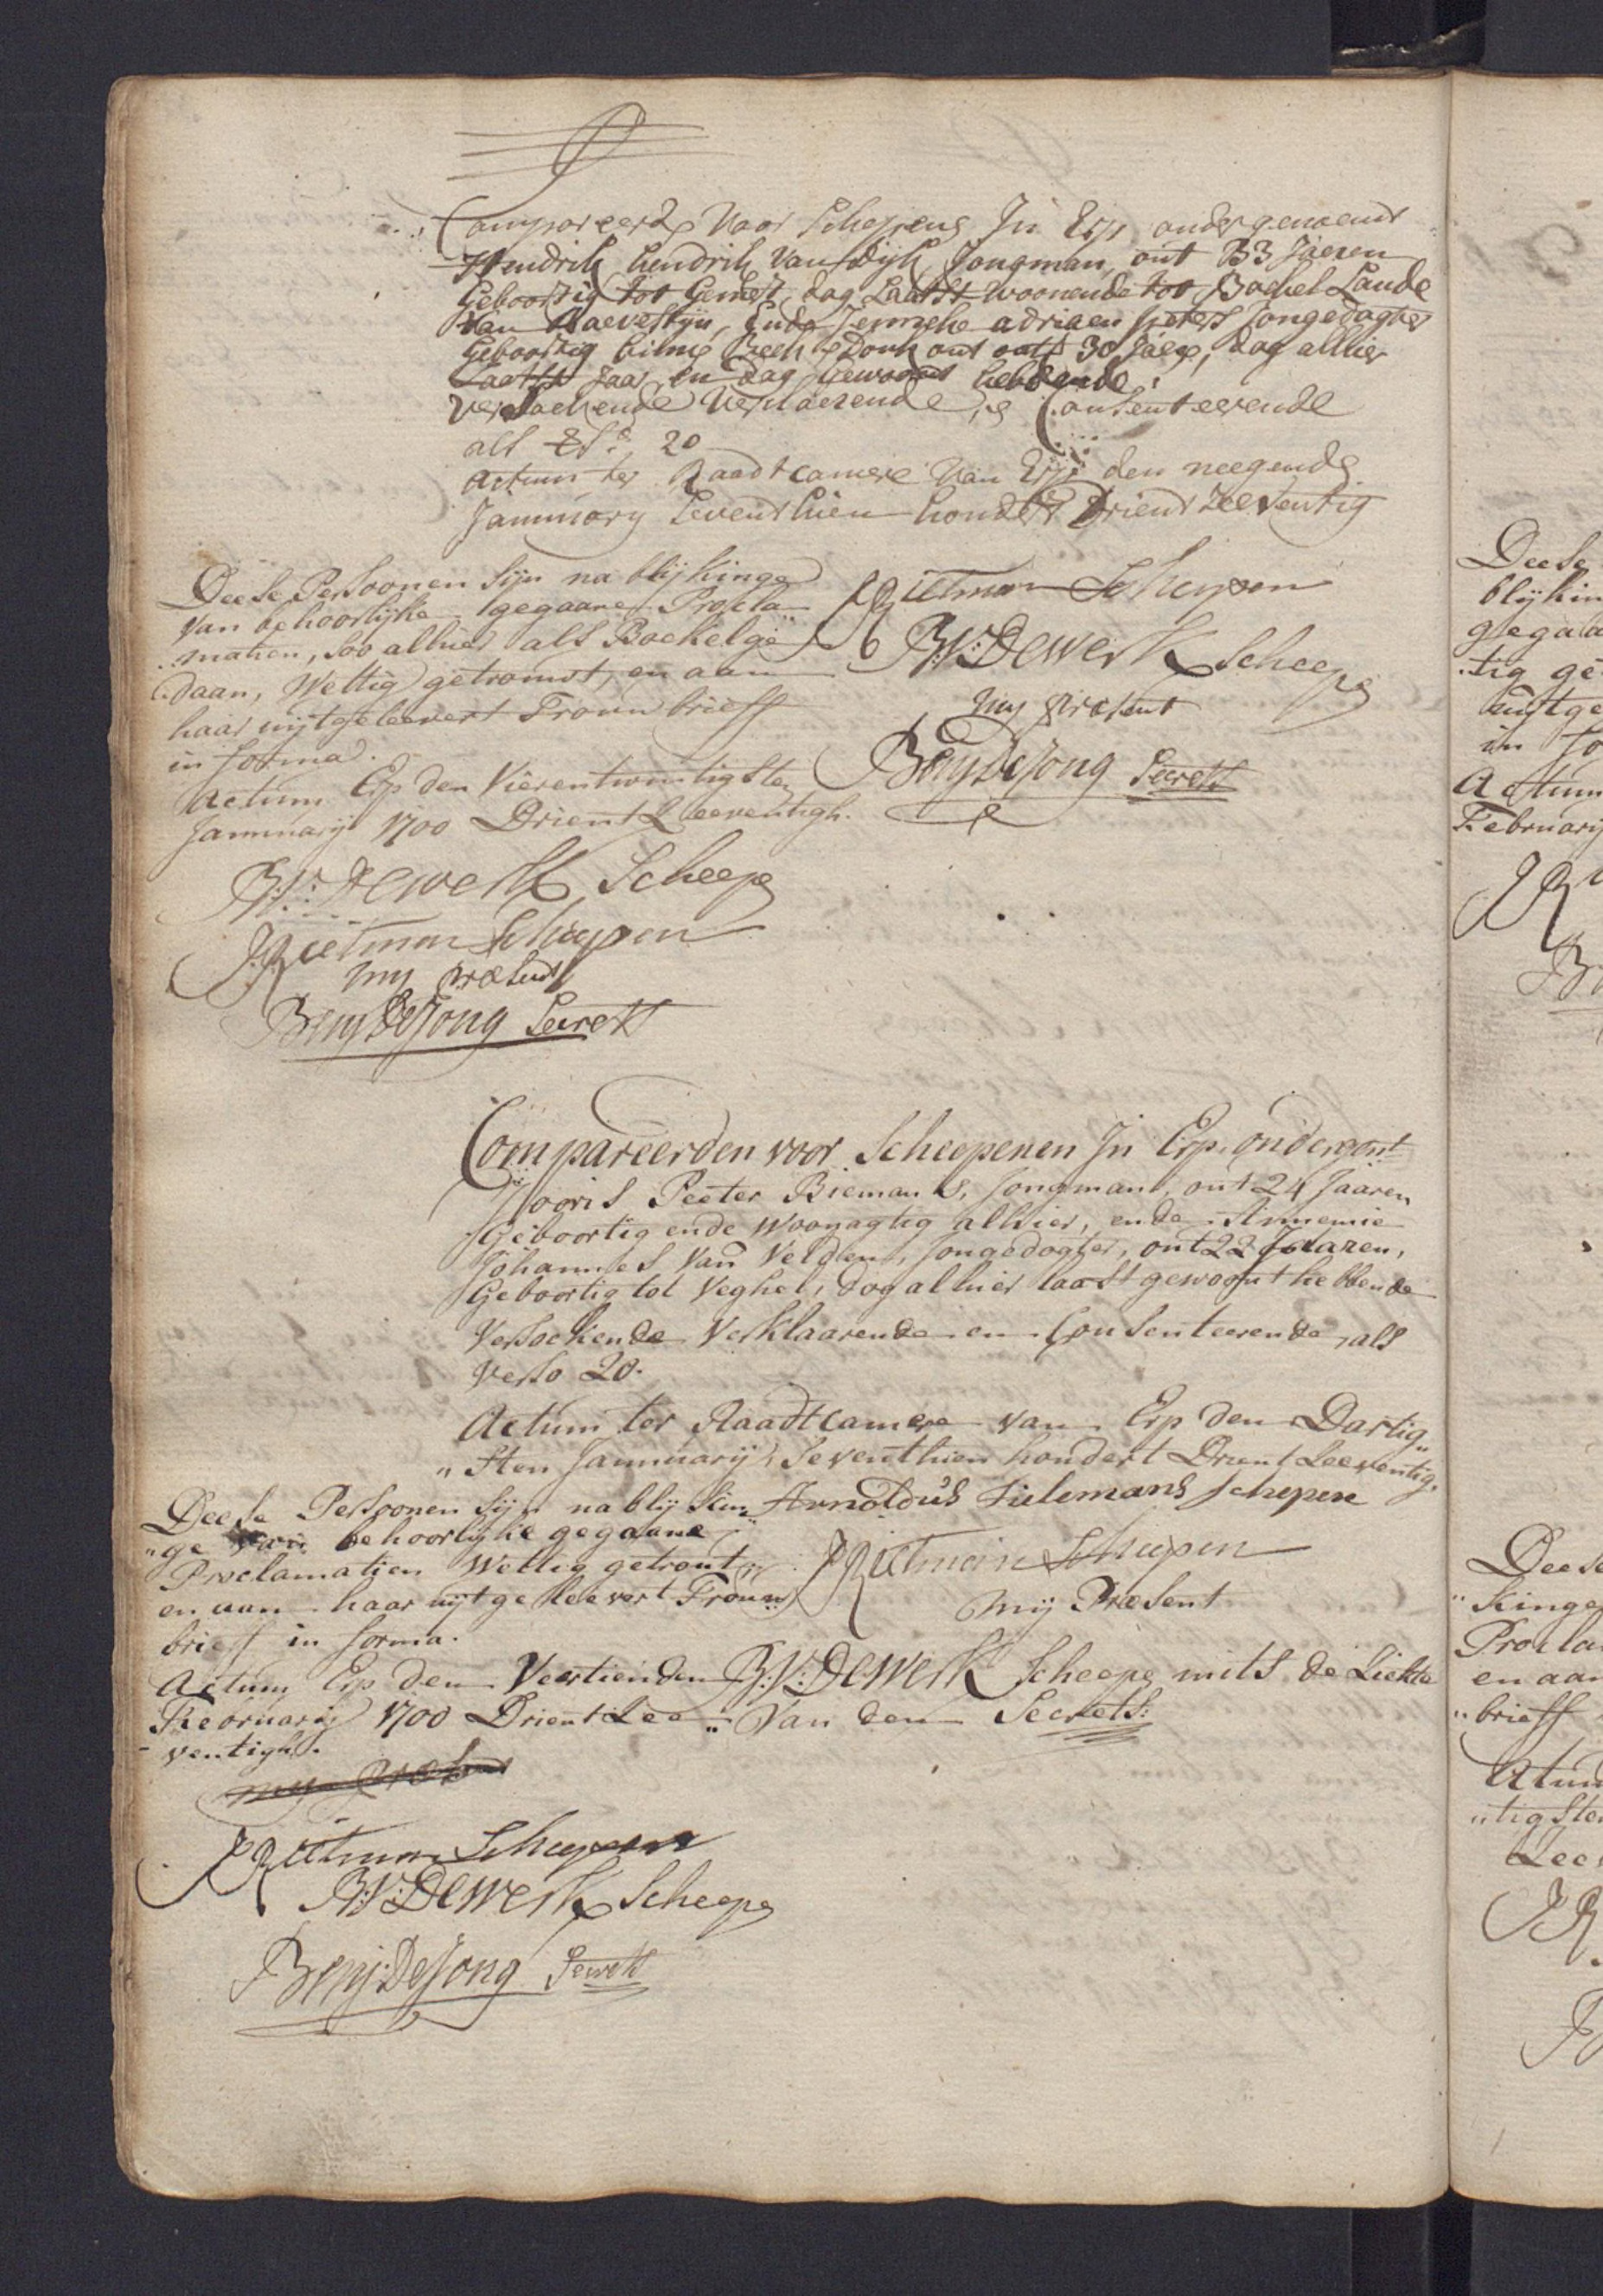 Compareerde Voor Schepens In Erp ondergenoemt
Hendrik hendrik Van Dijk Jongman, out 33 Jaeren
Geboortig tot Gemert, dog Laatst woonende tot Boekel Lande
Van Raevestijn, Ende Jenneke adriaen peters Jongedogter
Geboortig Beek en Donk out 30 Jaere, dog alhier
Laatst Jaar en dag gewoont hebbende,
Versoekende Verklaerende, e Consenteerende
als 20
Actum ter Raadtcamere Van Erp den neegende
Jannuary Seventhien hondert Drient Zeeventig
Deese Persoonen sijn na blijkinge
van behoorlijke gegaane Procla-
matien, soo alhier als Boekel ge-
daan, Wettig getrouwt, en aan
haar uijtgeleevert Trouw brieff
in forma.
Actum Erp den Vierentwintigsten
Jannuarij 1700 Drient Zeeventigh.
JRietman Scheepen
B:V:Dewerk Scheepe
mij præsent
Benj DeJong Secrets
B:V:Dewerk Scheepe
JRietman Scheepen
mij præsent
Benj DeJong Secrets
Compareerden voor Scheepenen In Erp ondergent
Jooris Peeter Biemans, Jongman, out 24 Jaaren
Geboortig ende Woonagtig alhier, ende Annemie
Johannes Van Velden, Jongedogter, out 22 Jaaren,
Geboortig tot Veghel, dog alhier laatst gewoont hebbende
Versoekende Verklaarende en Consenteerende, als
Verso 20.
Actum ter Raadtcamere van Erp den Dartig„
„sten Jannuarij, Seventhien hondert Drient Zeeventig.
Deese Persoonen sijn na blijkin„
„ge van behoorlijke gegaane
Proclamatien Wettig getrout,
en aan haar uijtgeleevert Trouw
brieff in forma.
Actum Erp den Veertienden
Februarij 1700 Drient Zee„
ventigh.
Arnoldus Tielemans schepen
JRietman Scheepen
mij Præsent
B:V:Dewerk Scheepe mits de Siekte
Van den Secrets:
mij præsent
JRietman Scheepen
B:V:Dewerk Scheepe
Benj: DeJong Secrets
Deese
blijkin
gegaa
tig ge
uijtge
in fo
Actum
February
JR
B
Deese
„kinge
Procla
en aan
„brieff
Actum
„tigste
Zee
JR
B